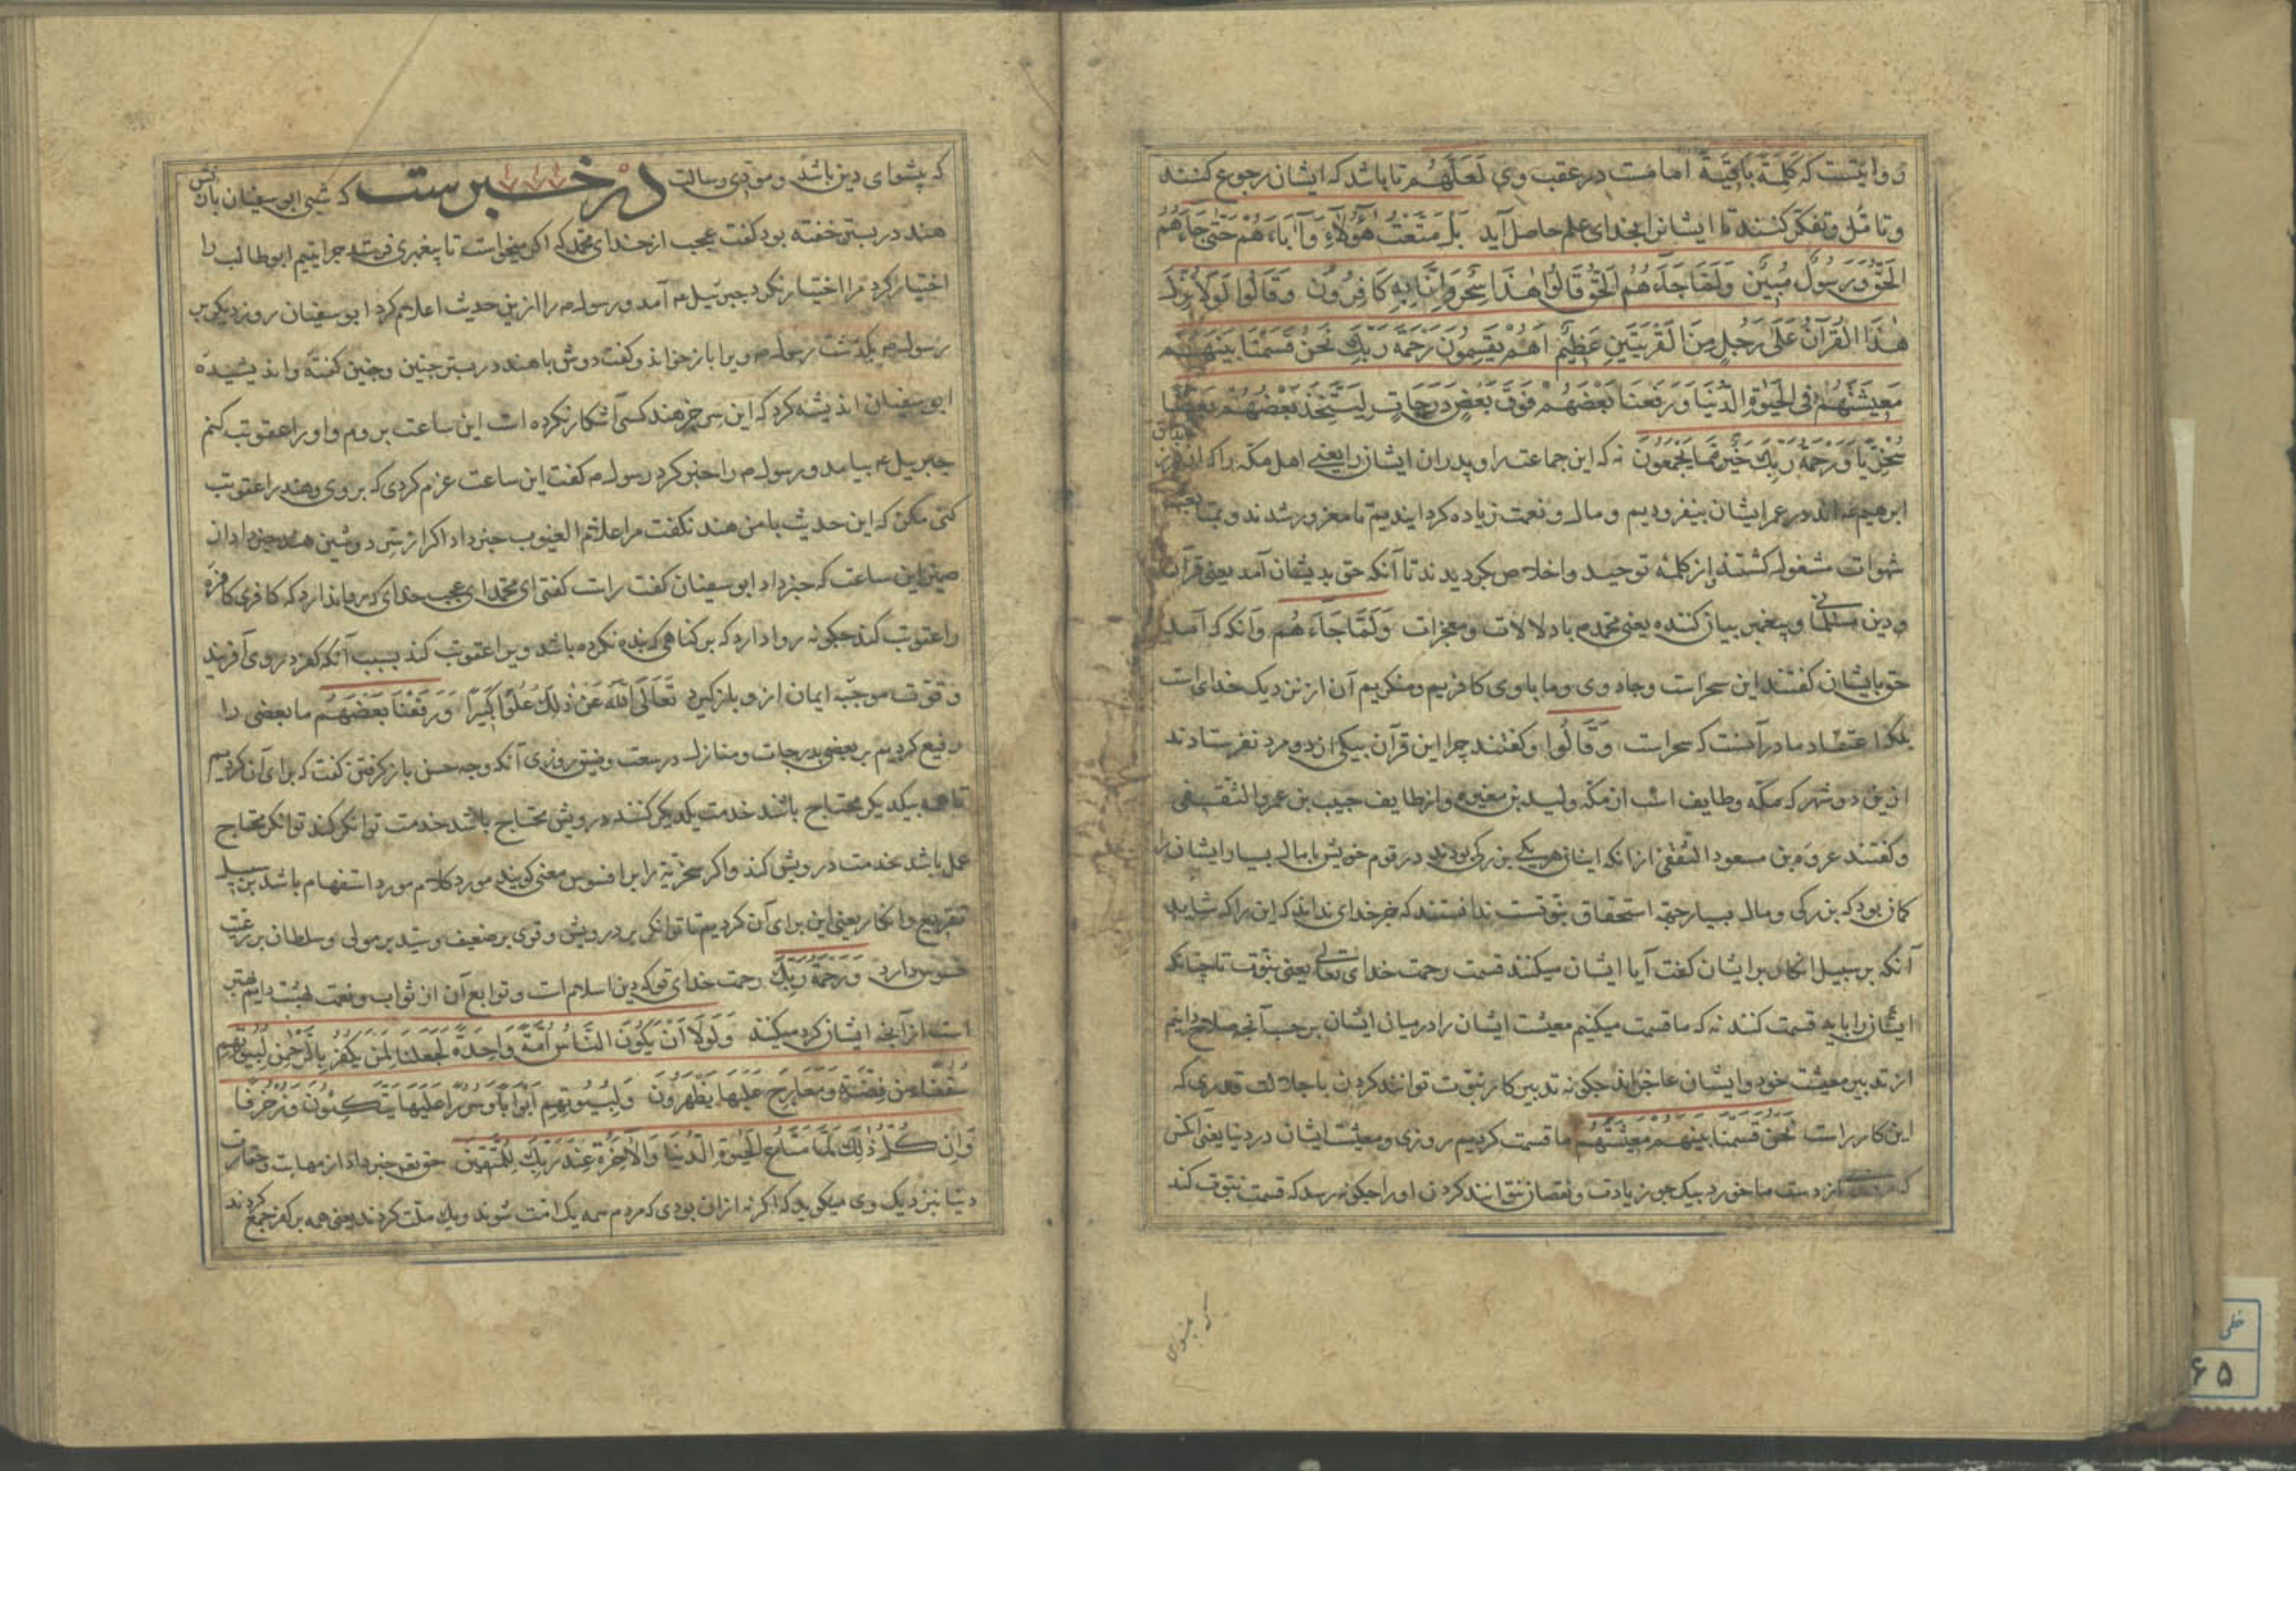 و روایتست که کَلِمَةً بَاقِیَةً امامست در عقب وی لَعَلَّهُم تا باشد که ایشان رجوع کنند
و تامل و تفکر کنند تا ایشانرا بخدای علم حاصل آید بَلْ مَتَّعْتُ هٰؤُلَاءِ وَآبَاءَهُمْ حَتّٰى جَاءَهُمُ
الْحَقُّ وَرَسُولٌ مُبِینٌ وَلَمَّا جَاءَهُمُ الْحَقُّ قَالُوا هٰذَا سِحْرٌ وَاِنَّا بِهِ کَافِرُونَ وَقَالُوا لَوْلَا نُزِّلَ
هٰذَا الْقُرْآنُ عَلٰى رَجُلٍ مِنَ الْقَرْیَتَیْنِ عَظِیمٍ اَهُمْ یَقْسِمُونَ رَحْمَةَ رَبِّكَ نَحْنُ قَسَمْنَا بَیْنَهُمْ
مَعِیشَتَهُمْ فِی الْحَیٰوةِ الدُّنْیَا وَرَفَعْنَا بَعْضَهُمْ فَوْقَ بَعْضٍ دَرَجَاتٍ لِیَتَّخِذَ بَعْضُهُمْ بَعْضًا
سُخْرِیًّا وَرَحْمَةُ رَبِّكَ خَیْرٌ مِمَّا یَجْمَعُونَ نه که این جماعت را و پدران ایشان را یعنی اهل مکه را که از فرزندان
ابرهیم‌اند در عمر ایشان بیفزودیم و مال و نعمت زیاده کردانیدیم تا مغرور شدند و
شهوات مشغول کشتند از کلمهٔ توحید و اخلاص بکردیدند تا آنکه حق بدیشان آمد یعنی قرآن
و دین مسلمانی و پیغمبر بیان کننده یعنی محمد م با دلالات و معجزات وَلَمَّا جَاءَهُم و آنکه که آمد
حق بایشان کفتند این سحر است و جادوی و ما با وی کافریم و منکریم آن از نزدیک خدای است
بلکه اعتقاد ما در آنست که سحر است وَقَالُوا و کفتند چرا این قرآن بیکی از دو مرد نفرستادند
ازین دو شهر که مکه و طایف است از مکه ولید بن مغیره و از طایف حبیب بن عمرو الثقفی
و کفتند عروه بن مسعود الثقفی از انکه ایشان هر یکی بزرکی بودند در قوم خویش با مال بسیار و ایشان را
کمان بود که بزرکی و مال بسیار جهة استحقاق نبوتست ندانستند که جز خدای نداند که این را که شاید
آنکه بر سبیل انکار بر ایشان کفت آیا ایشان میکنند قسمت رحمت خدای تعالی یعنی نبوت تا چنانکه
ایشان را باید قسمت کنند نه که ما قسمت میکنیم معیشت ایشان را در میان ایشان بر حسب آنچه صلاح دانیم
از تدبیر معیشت خود و ایشان عاجزاند چکونه تدبیر کار نبوت توانند کردن با جلالت قدری که
این کار راست نَحْنُ قَسَمْنَا بَیْنَهُمْ مَعِیشَتَهُمْ ما قسمت کردیم روزی و معیشت ایشان در دنیا یعنی آنکس
که از دست ما خورد بیک جو زیادت و نقصان نتوانند کردن او را چکونه رسد که قسمت نبوت کند
که پیشوای
که پیشوای دین باشد و مودی رسالت در خبرست که شبی ابو سفیان با زنش
هند در بستر خفته بود کفت عجب از خدای محمد که اکر میخواست تا پیغمبری فرستد چرا یتیم ابو طالب را
اختیار کرد مرا اختیار نکرد جبرئیل م آمد و رسول م را ازین حدیث اعلام کرد ابو سفیان روز دیکر بر
رسول م بکذشت رسول م ویرا باز خواند و کفت دوش با هند در بستر چنین و چنین کفتهٔ و اندیشیدهٔ
ابو سفیان اندیشه کرد که این سر جز هند کسی آشکار نکرده است این ساعت بروم و او را عقوبت کنم
جبریل م بیامد و رسول م را خبر کرد رسول م کفت این ساعت عزم کردی که بروی و هند را عقوبت
کنی مکن که این حدیث با من هند نکفت مرا علام الغیوب خبر داد اکر از سِر دوشین هند خبر داد از
ضمیر این ساعت که خبر داد ابو سفیان کفت راست کفتی ای محمد ای عجب خدای که روا ندارد که کافری کافرهٔ
را عقوبت کند چکونه روا دارد که بر کناهی که بنده نکرده باشد ویرا عقوبت کند بسبب آنکه کفر در وی آفریند
و قوّت موجبهٔ ایمان از و باز کیرد تَعَالَى اللّٰهُ عَنْ ذٰلِكَ عُلُوًّا كَبِیرًا وَرَفَعْنَا بَعْضَهُمْ ما بعضی را
رفیع کردیم بر بعضی بدرجات و منازل در سعت و ضیق روزی آنکه وجه حسن باز کرفتن کفت که برای آن کردیم
تا همه بیکدیکر محتاج باشند خدمت یکدیکر کنند درویش محتاج باشد خدمت توانکر کند توانکر محتاج
عمل باشد خدمت درویش کند و اکر سخریّة را بر افسوس معنی کویند مورد کلام مورد استفهام باشد بر سبیل
تقریع و انکار یعنی این برای آن کردیم تا توانکر بر درویش و قوی بر ضعیف و سید بر مولی و سلطان بر رعیت
فسوس دارد وَرَحْمَةُ رَبِّكَ رحمت خدای تو که دین اسلام است و توابع آن از ثواب و نعمت بهشت دایم بهتر
است از آنچه ایشان کرد میکنند وَلَوْلَا اَنْ یَكُونَ النَّاسُ اُمَّةً وَاحِدَةً لَجَعَلْنَا لِمَنْ یَكْفُرُ بِالرَّحْمٰنِ لِبُیُوتِهِمْ
سُقُفًا مِنْ فِضَّةٍ وَمَعَارِجَ عَلَیْهَا یَظْهَرُونَ وَلِبُیُوتِهِمْ اَبْوَابًا وَسُرُرًا عَلَیْهَا یَتَّكِئُونَ وَزُخْرُفًا
وَاِنْ كُلُّ ذٰلِكَ لَمَّا مَتَاعُ الْحَیٰوةِ الدُّنْیَا وَالْآخِرَةُ عِنْدَ رَبِّكَ لِلْمُتَّقِینَ حق تع خبر داد از مهانت و حقارت
دنیا بنزدیک وی میکوید که اکر نه از آن بودی که مردم همه یک امت شوند و یک ملت کردند یعنی همه بر کفر جمع کردند
خطی
۶۵